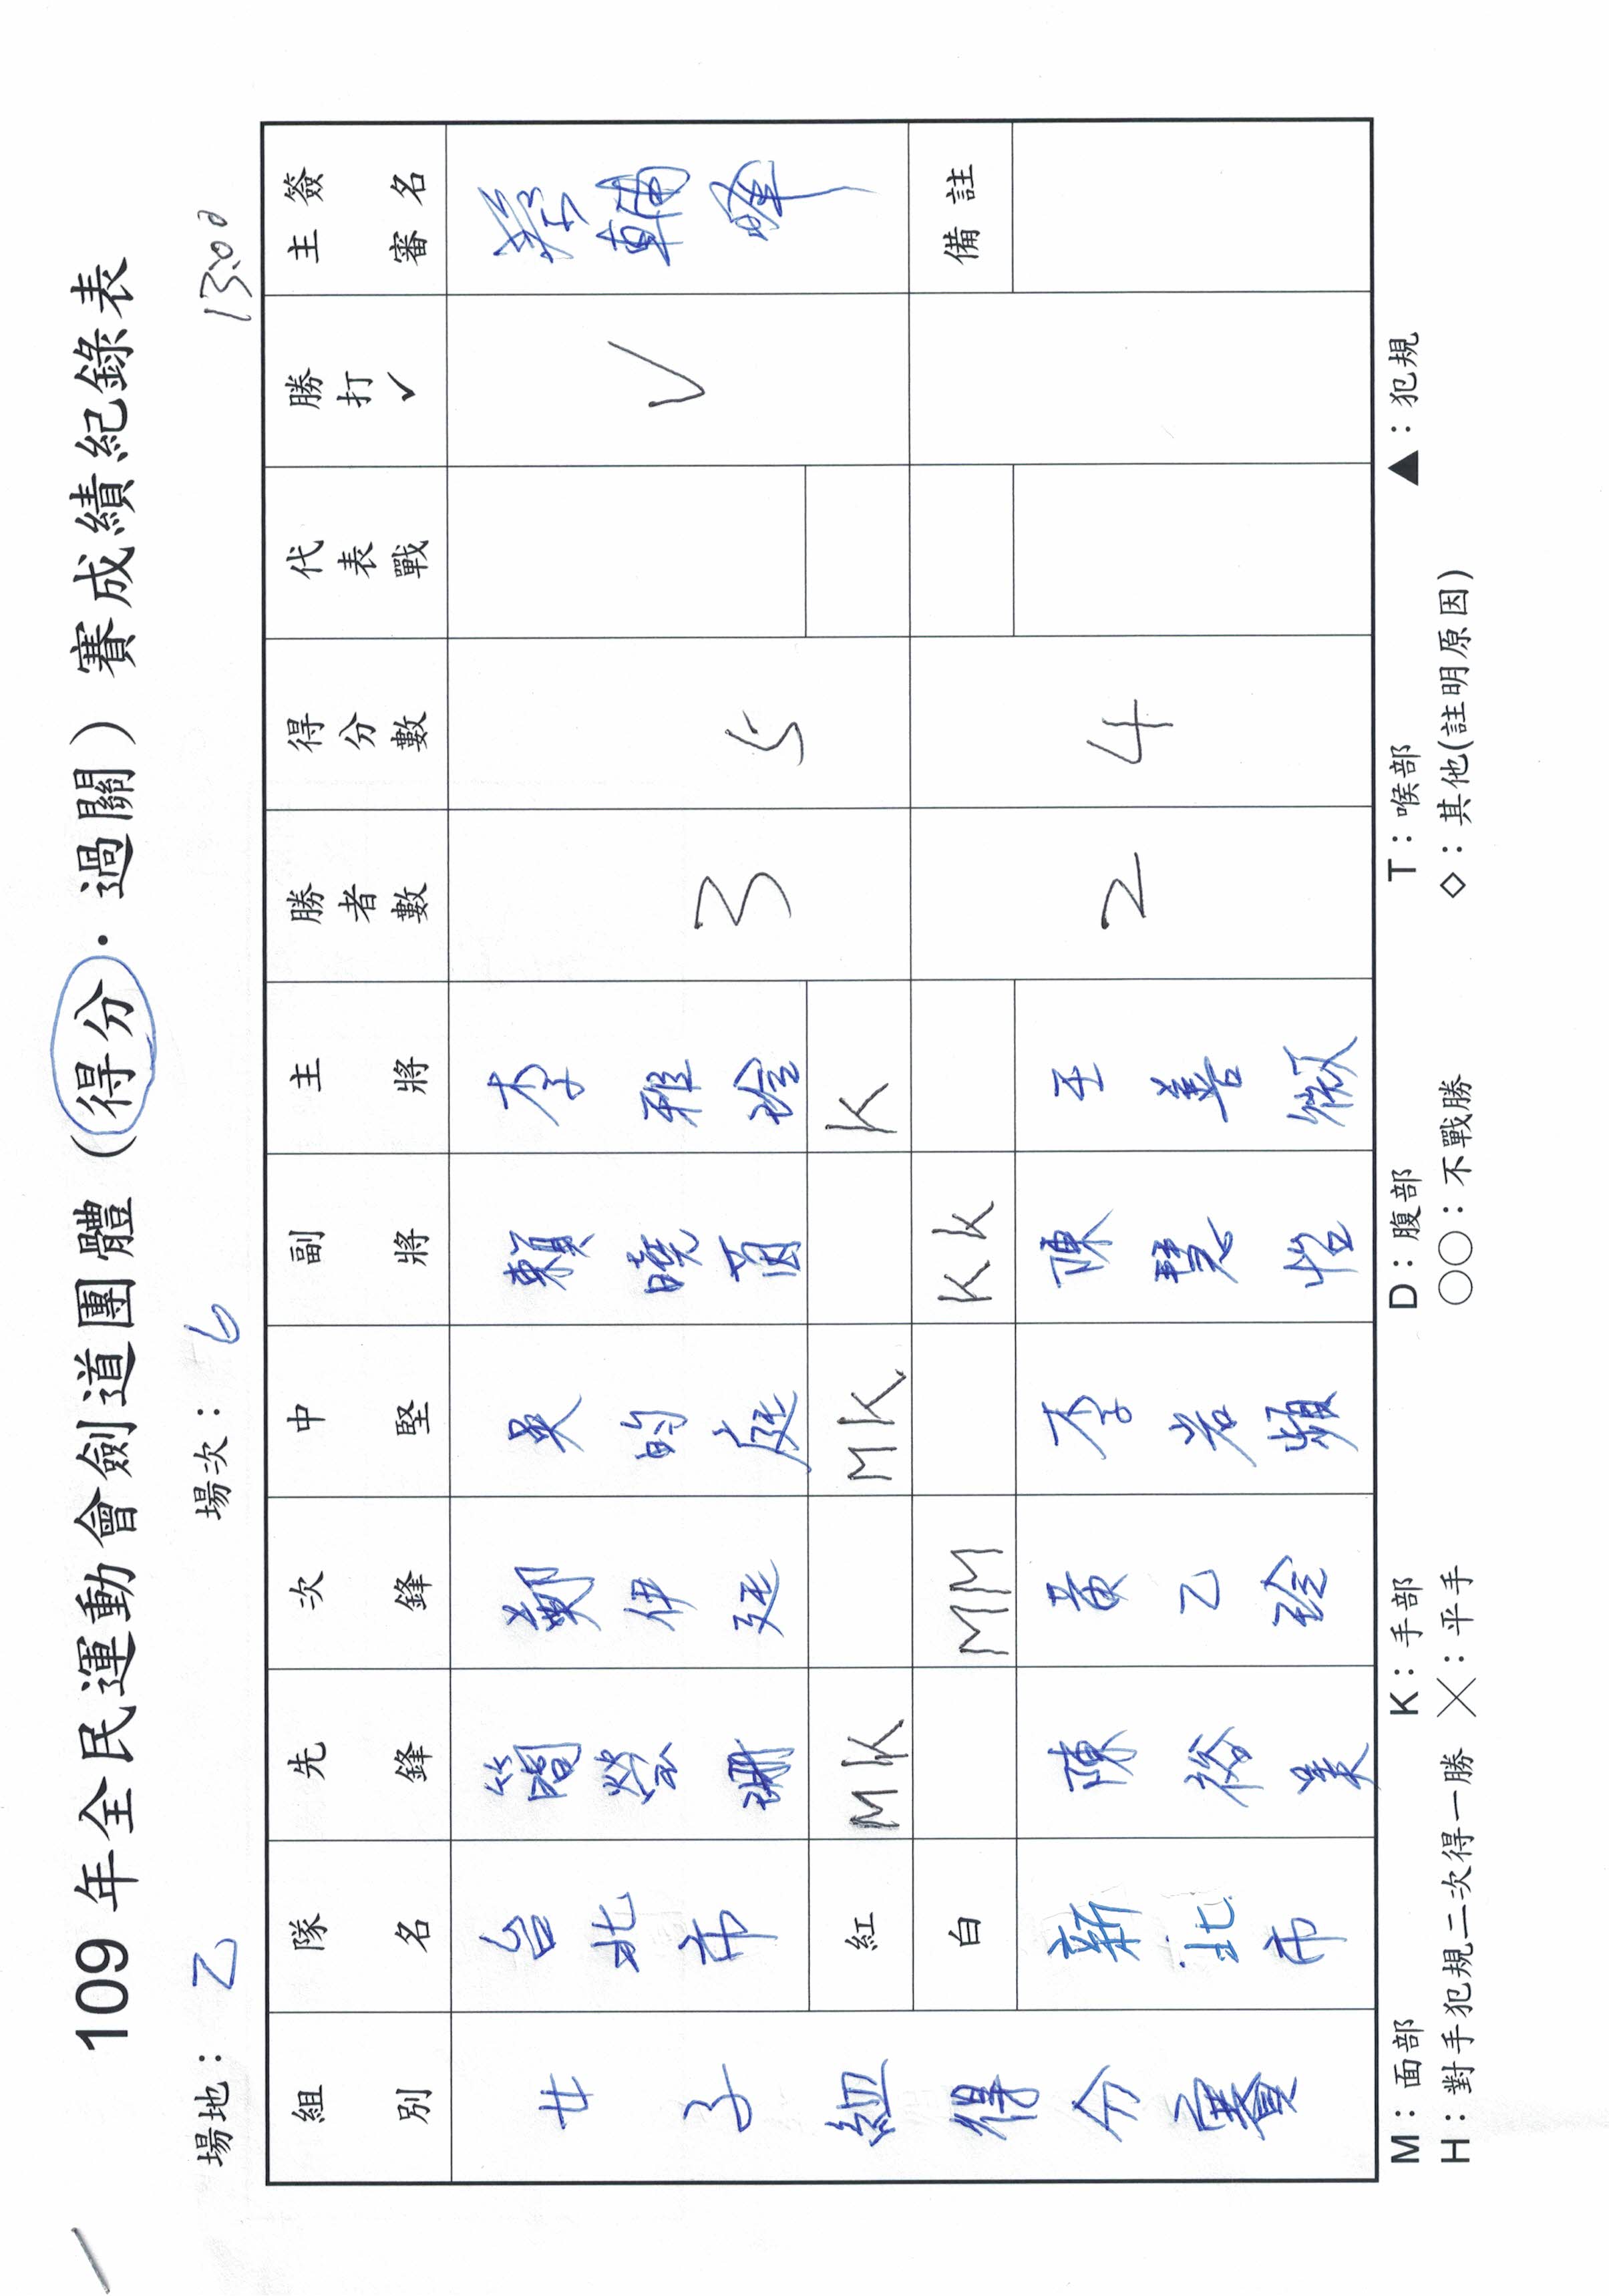 109 年全民運動會劍道團體（得分．過關）賽成績紀錄表
場地： 乙 場次： 6 13:00
組別 隊名 先鋒 次鋒 中堅 副將 主將 勝者數 得分數 代表戰 勝打✓ 主審簽名
女子組得分賽 台北市 簡瑩珊 鄭伊廷 吳昀庭 賴曉茵 李雅玲 3 5 ✓ 葉輔峰
紅 MK MK K
白 MM KK 備註
新北市 陳裕美 黃乙玲 李岩頻 陳慧怡 王善薇 2 4
M：面部 K：手部 D：腹部 T：喉部 ▲：犯規
H：對手犯規二次得一勝 ╳：平手 ○○：不戰勝 ◇：其他(註明原因)